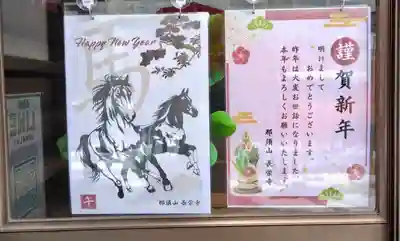 Happy New Year
馬
午
謹賀新年
明けまして
おめでとうございます。
昨年は大変お世話になりました。
本年もよろしくお願いいたします。
那須山 長栄寺